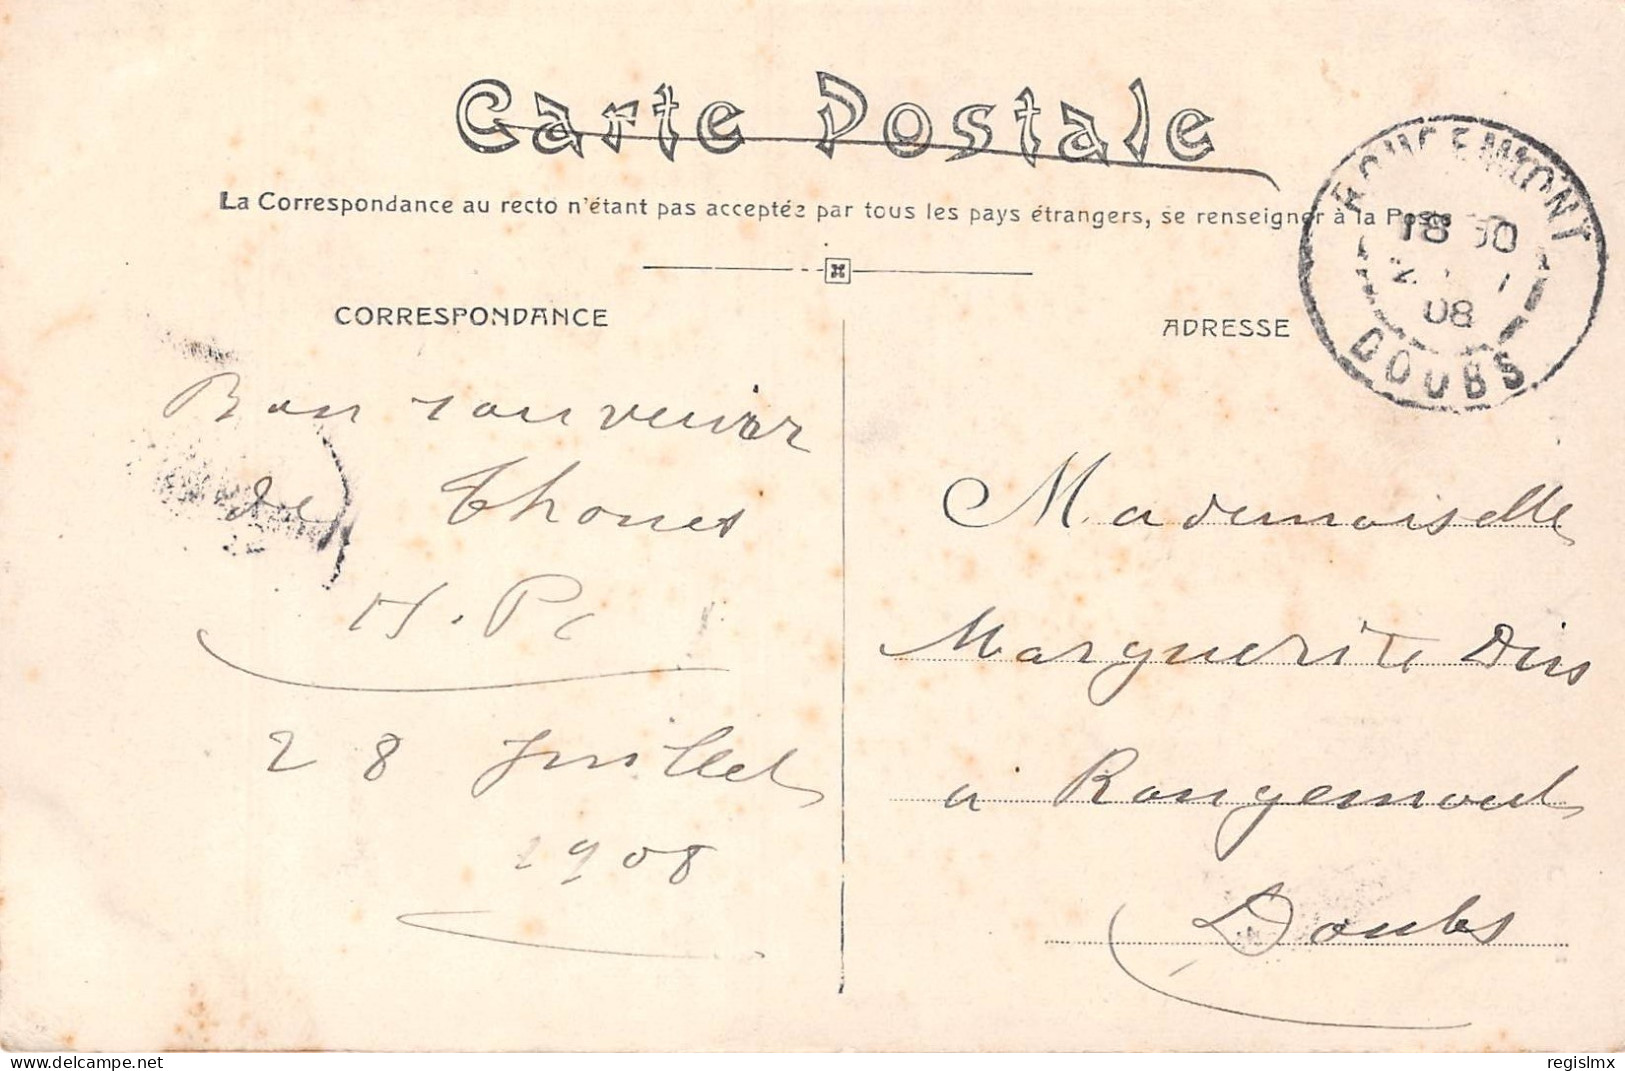 Carte Postale
La Correspondance au recto n'étant pas acceptée par tous les pays étrangers, se renseigner à la Poste
CORRESPONDANCE
Bon souvenir
de Thoues
H. P
28 Juillet
1908
ADRESSE
ROUGEMONT
18 30
08
DOUBS
Mademoiselle
Marguerite
à Rougemont
Doubs
www.delcampe.net
regislmx